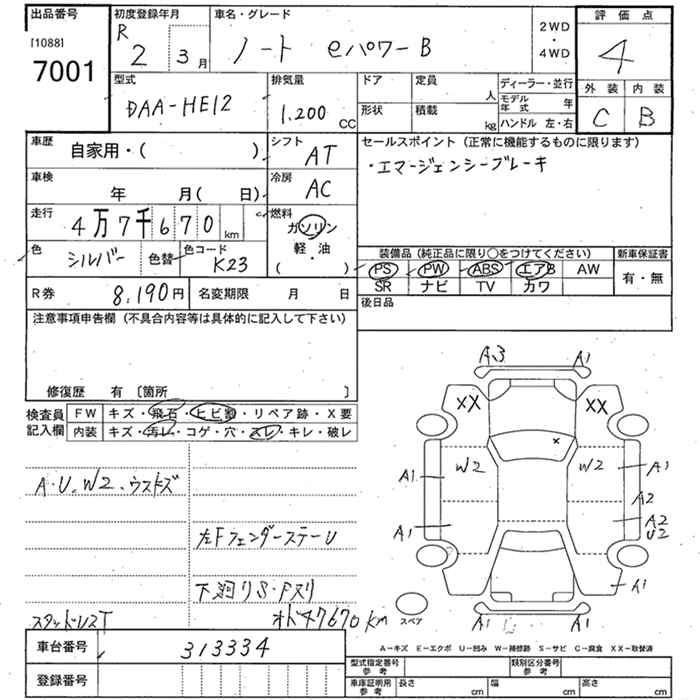 出品番号
[1088]
7001
初度登録年月
R 2 3月
車名・グレード
ノート eパワーB
2WD
・
4WD
評価点
4
外装 内装
C B
型式
DAA-HE12
排気量
1.200 CC
ドア 定員 人
形状 積載 kg
ディーラー・並行
モデル年式 年
ハンドル 左・右
車歴
自家用・( )
シフト
AT
車検
年 月( 日)
冷房
AC
走行
4万7千670km
燃料
ガソリン
軽・油
( )
色
シルバー
色替
色コード
K23
セールスポイント (正常に機能するものに限ります)
・エマージェンシーブレーキ
装備品(純正品に限り○をつけてください)
PS PW ABS エアB AW
SR ナビ TV カワ
新車保証書
有・無
R券 8,190円
名変期限 月 日
後日品
注意事項申告欄 (不具合内容等は具体的に記入して下さい)
修復歴 有 〔箇所 〕
検査員
記入欄
FW キズ・飛石・ヒビ割・リペア跡・X要
内装 キズ・汚レ・コゲ・穴・スレ・キレ・破レ
A.U.W2.ウスキズ
左FフェンダーステーU
下廻りS・Fスリ
スタッドレスT
オド47670km
A3 A1
XX XX
W2 W2
A1 A1
A2
A1 A2
U2
A1
A1 A1
スペア
車台番号 313334
登録番号
A-キズ E-エクボ U-凹み W-補修跡 S-サビ C-腐食 XX-取替済
型式指定番号
参考
類別区分番号
参考
車庫証明用
参考
長さ cm 幅 cm 高さ cm